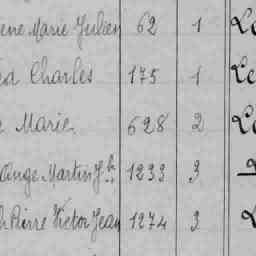 ène Marie Julien 62 1 Le
Charles 175 1 Le
Marie 628 2 Le
Ange Martin Jh 1233 3
Pierre Victor Jean 1274 3 L